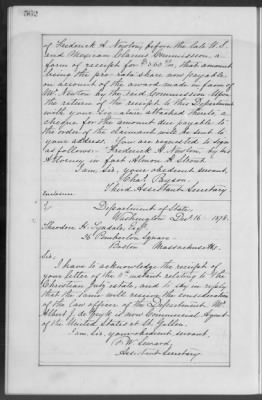 562
of Frederick A. Newton, before the late U.S.
and Mexican Claims Commission, a
form of receipt for $560 7/100, that amount
being the pro-rata share now payable
on account of the award made in favor of
Mr. Newton by the said Commission. Upon
the return of the receipt to this Department
with your signature attached thereto, a
cheque for the amount due payable to
the order of the claimant will be sent to
your address. You are requested to sign
as follows: Frederick A. Newton, by his
Attorney in fact Almon A. Strout.
I am, Sir, your obedient servant,
Chas. Payson.
Third Assistant Secretary
Enclosure.
Department of State,
Washington Dec. 16 1878.
Theodore H. Tyndale Esqr.
Pemberton Square
Boston Massachusetts.
Sir,
I have to acknowledge the receipt of
your letter of the instant relating to the
Christian estate, and to say in reply
that the same will receive the consideration
of the law officer of the Department. Mr.
Albert J. is now Commercial Agent
of the United States at St. Gallen.
I am, Sir, your obedient servant,
F. W. Seward,
Assistant Secretary.